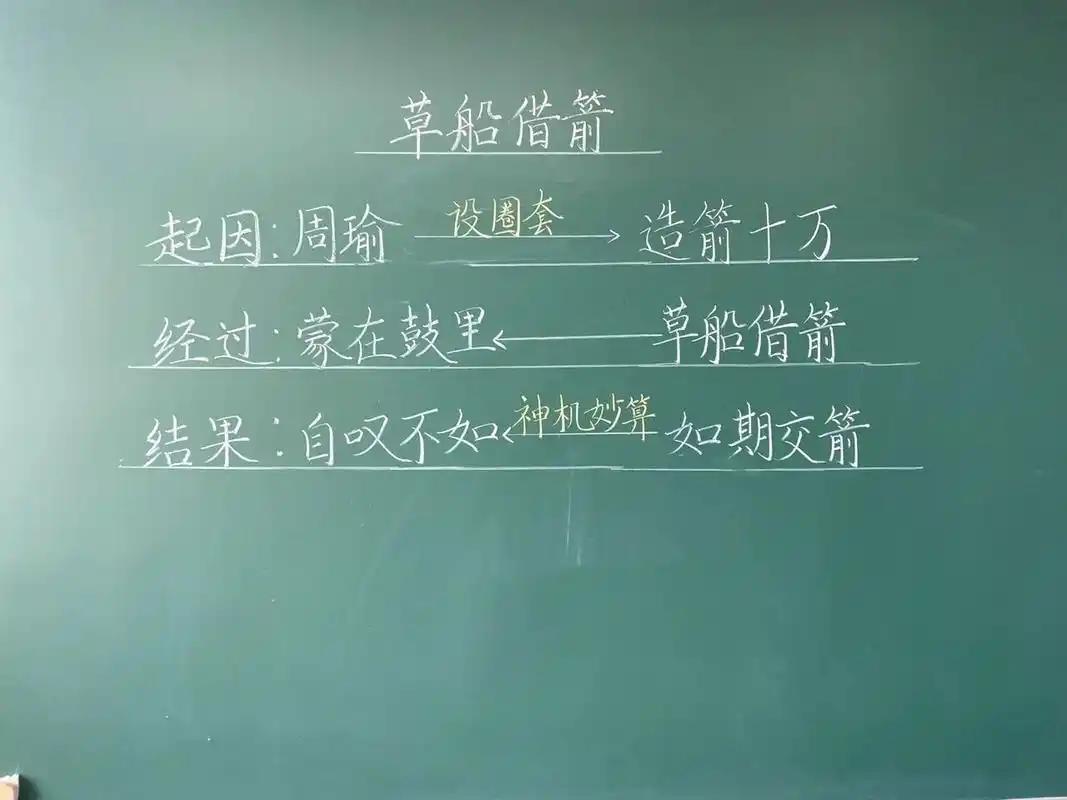 草船借箭
起因:周瑜 设圈套 → 造箭十万
经过:蒙在鼓里 ← 草船借箭
结果:自叹不如 ← 神机妙算 如期交箭